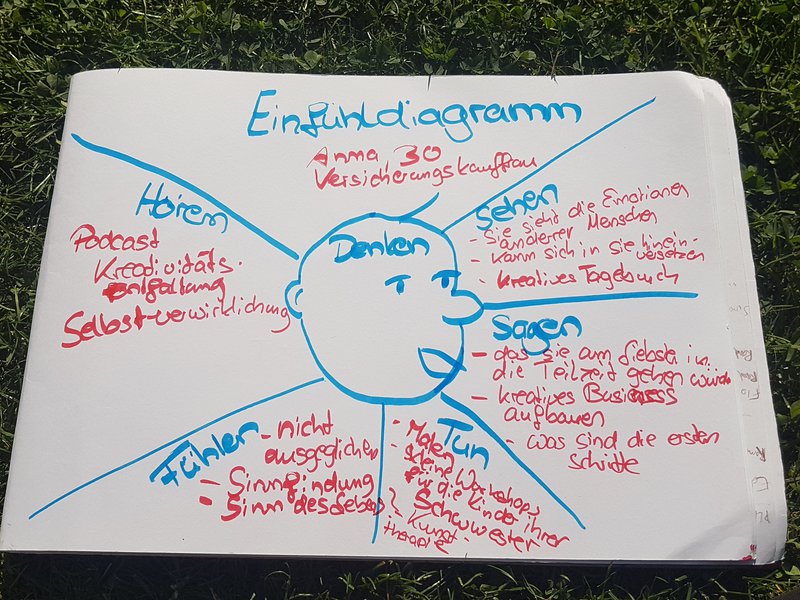 Einfühldiagramm
Anna, 30
Versicherungskauffrau
Hören
Podcast
Kreativitäts-
entfaltung
Selbstverwirklichung
Denken
Sehen
- Sie sieht die Emotionen
anderer Menschen
- kann sich in sie hinein-
versetzen
- kreatives Tagebuch
Sagen
- das sie am liebsten in
die Teilzeit gehen würde
- kreatives Business
aufbauen
- was sind die ersten
Schritte
Tun
- Malen
- kleine Workshops
für die Kinder ihrer
Schwester
- Kunst-
therapie
Fühlen
- nicht
ausgeglichen
- Sinnfindung
- Sinn des Lebens